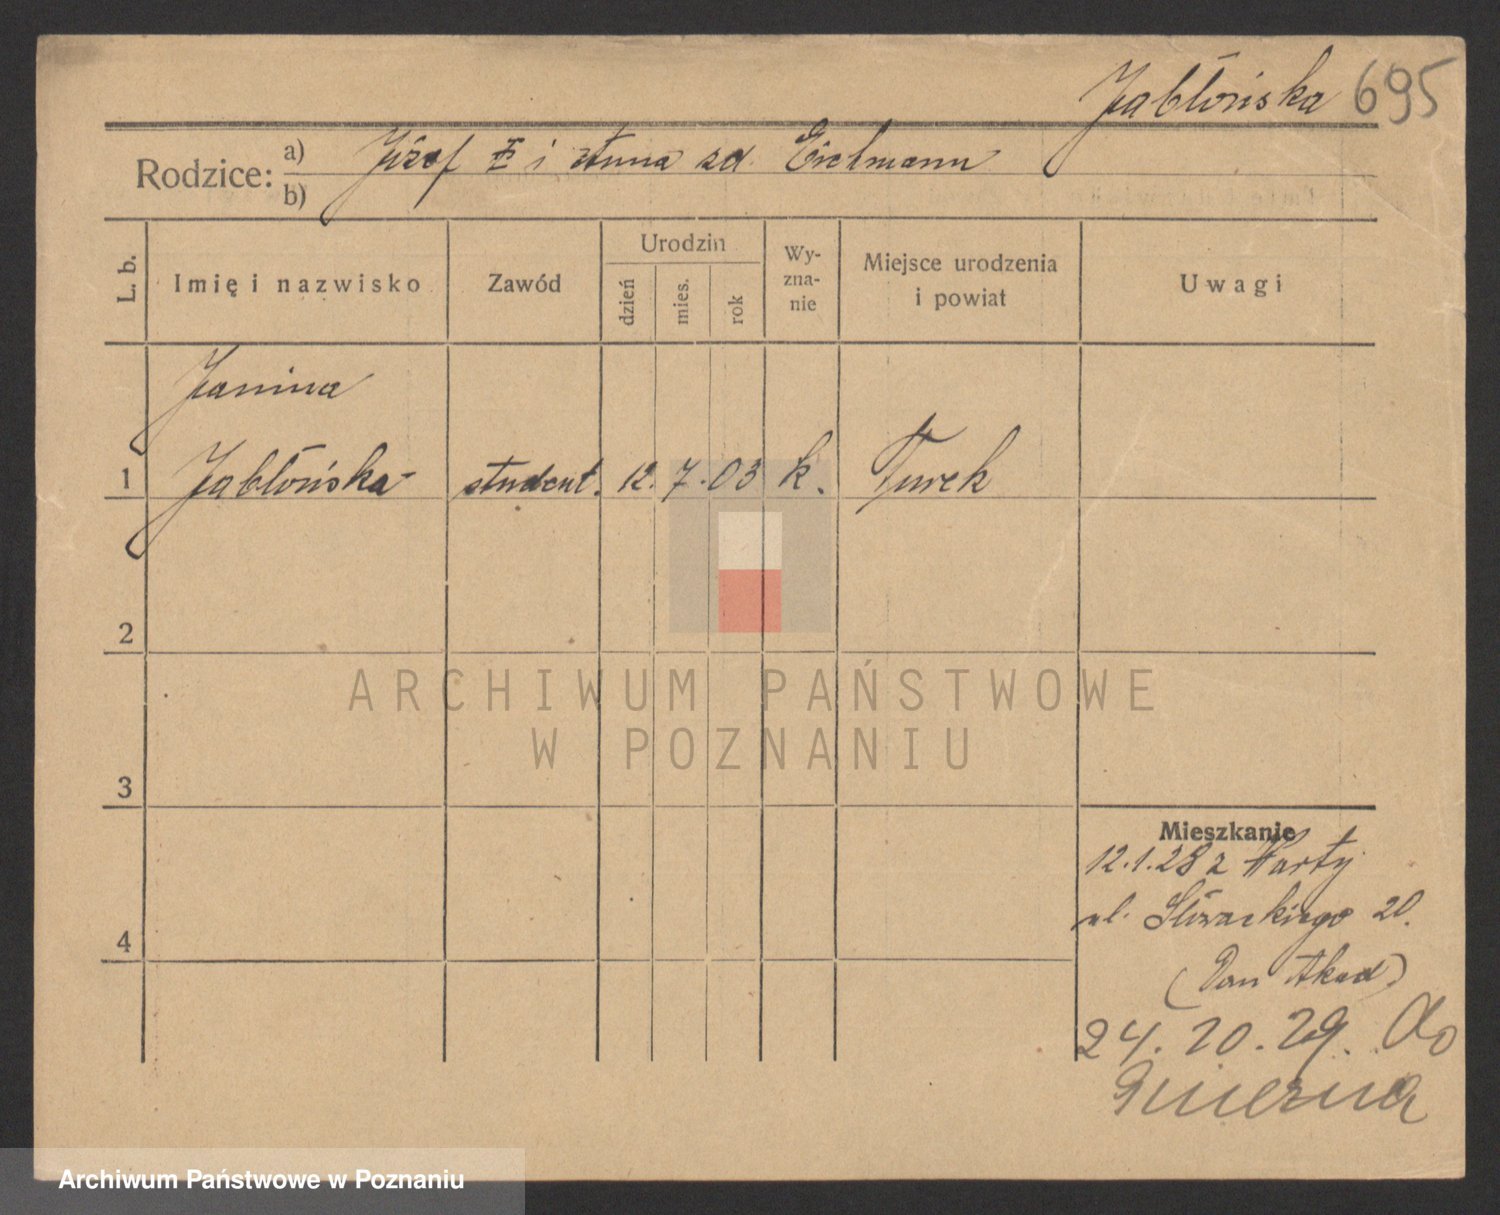 Jabłońska 695
Rodzice: a) Józef i Anna zd.
b)
L. b.
Imię i nazwisko
Zawód
Urodzin
dzień
mies.
rok
Wy-
zna-
nie
Miejsce urodzenia
i powiat
Uwagi
Janina
1 Jabłońska student. 12. 7. 03 k. Turek
2
ARCHIWUM PAŃSTWOWE
W POZNANIU
3
Mieszkanie
12.1.28 z Warty
ul. Słowackiego 20.
4
(Dom Akad)
24. 10. 29. do
Gniezna
Archiwum Państwowe w Poznaniu